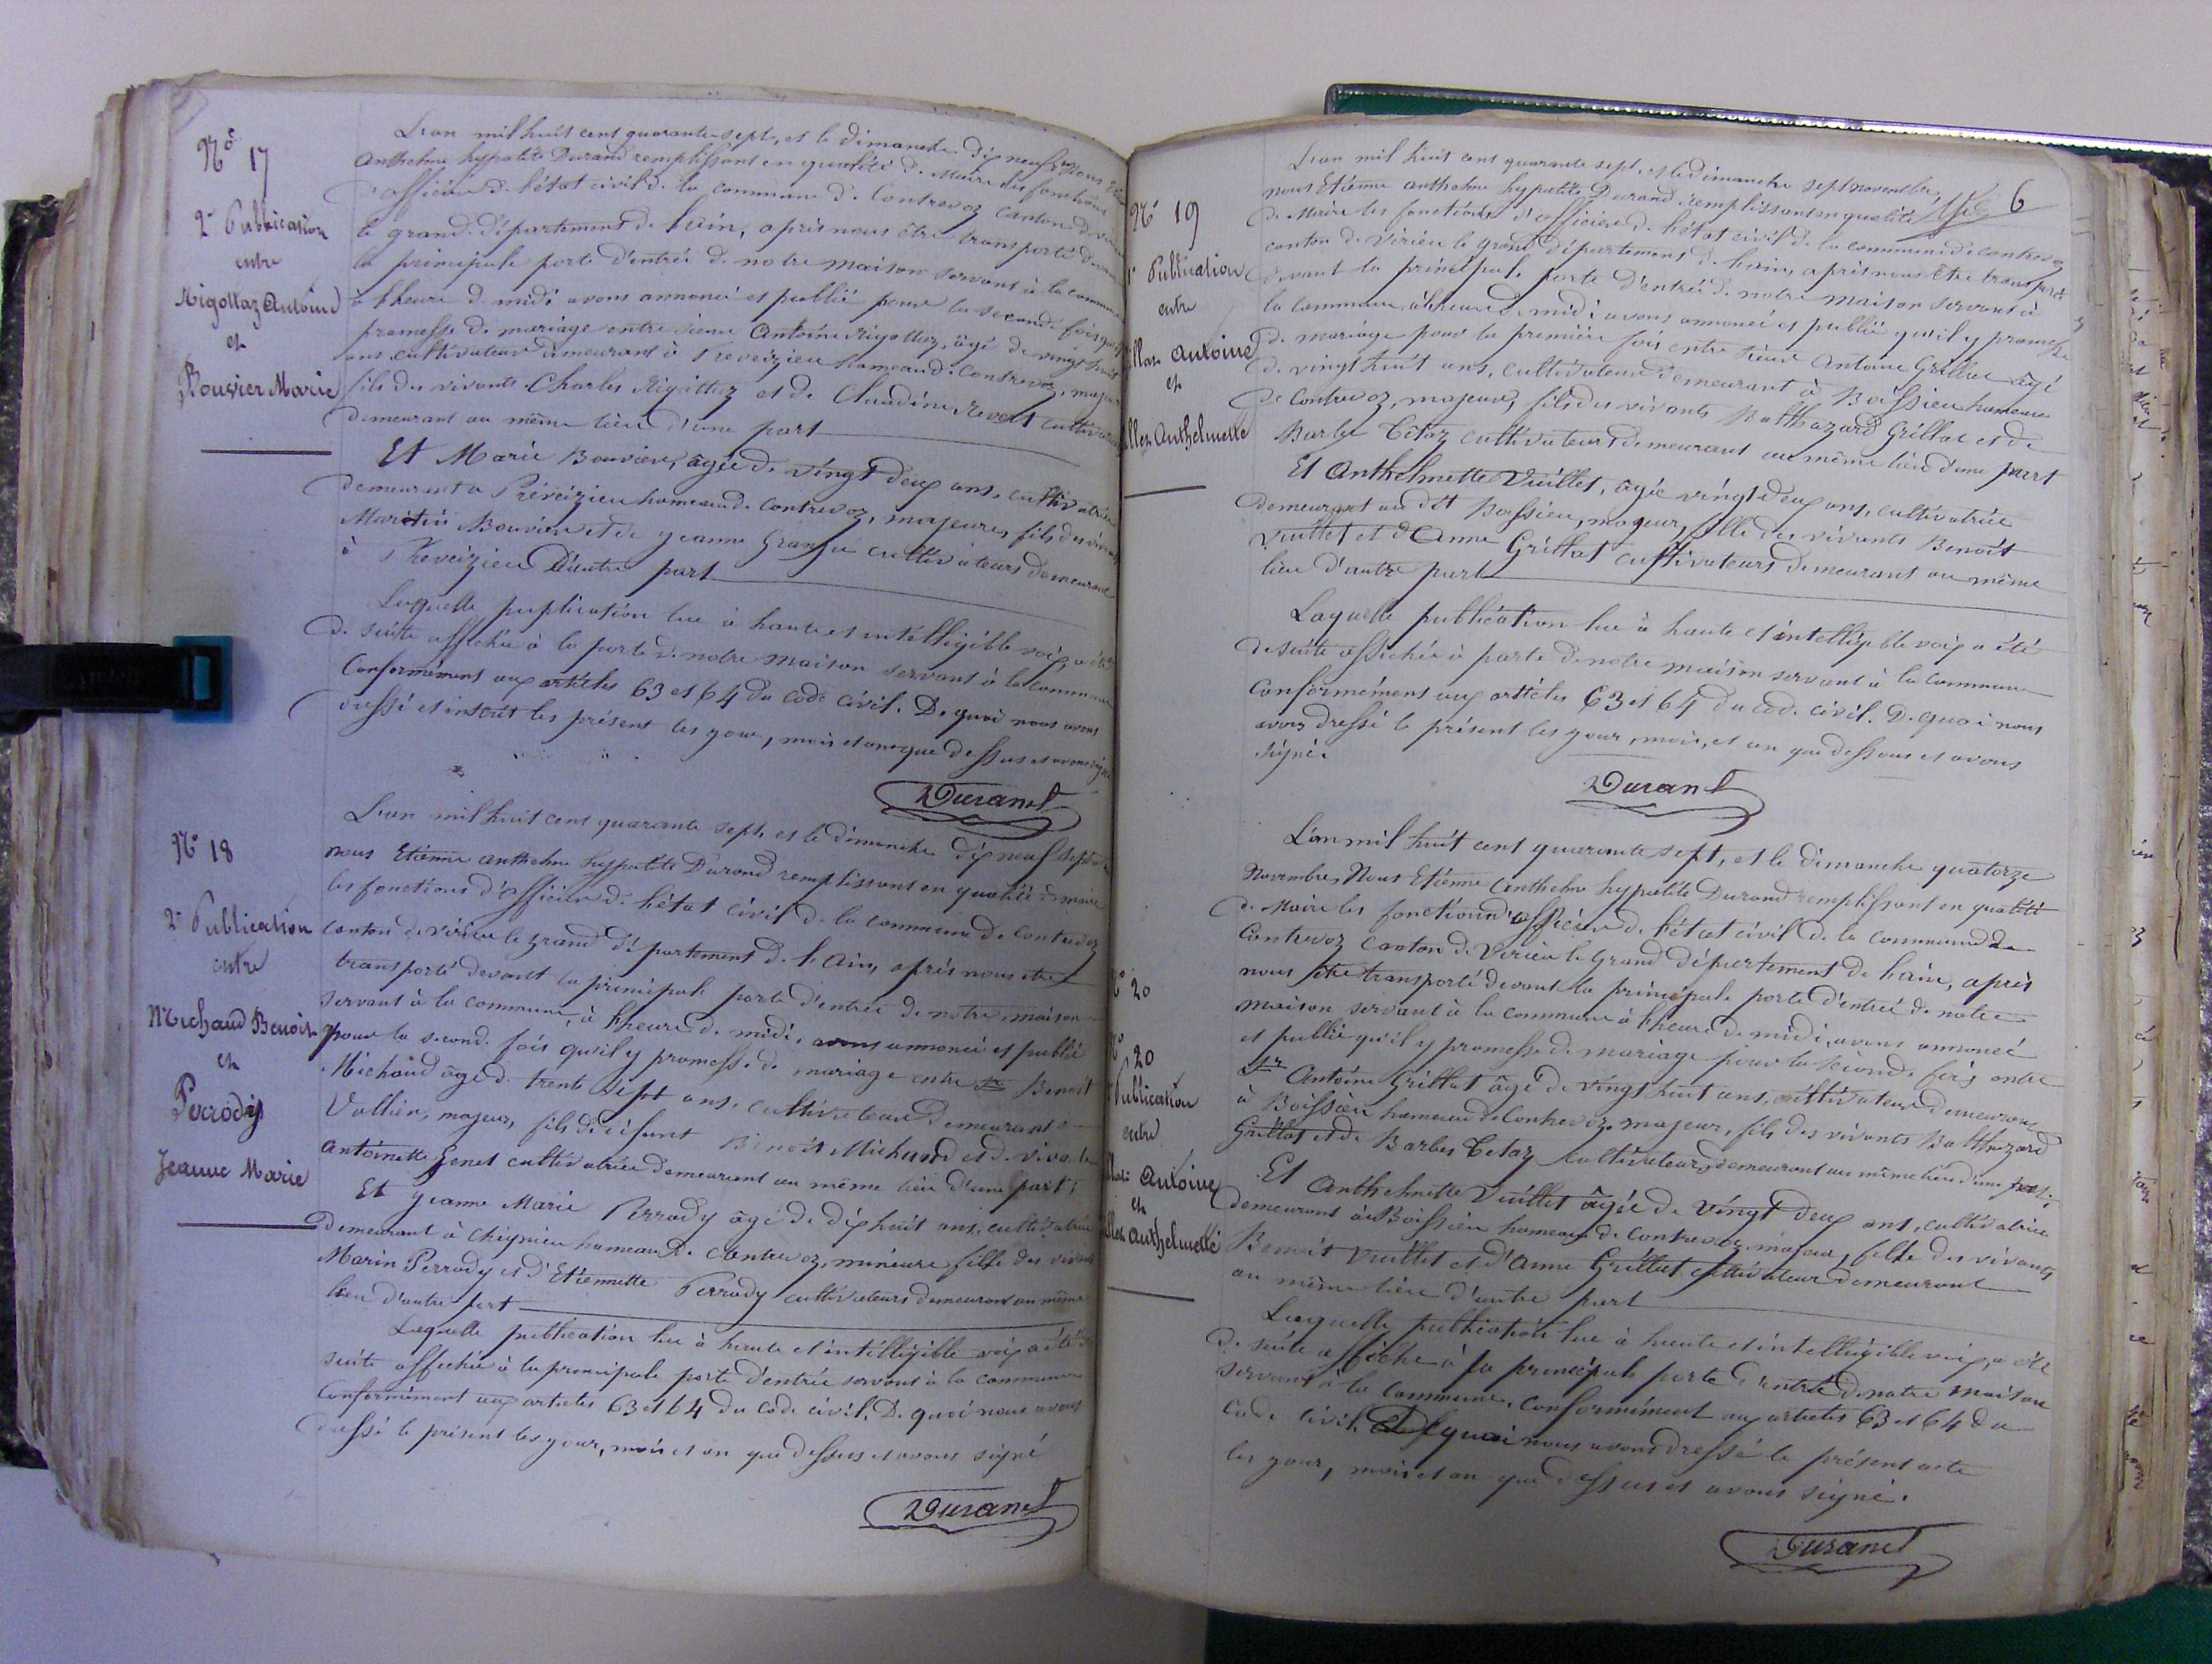 Nº 17
2e Publication
entre
Rigottaz Antoine
et
Bouvier Marie
L'an mil huit cent quarante-sept, et le dimanche dix neuf nous
Anthelme hypolite Durand remplissant en qualité de Maire les fonctions
d'officier de l'état civil de la commune de Contrevoz Canton de
le grand département de l'ain, après nous être transporté devant
la principale porte d'entrée de notre maison servant à la commune
à l'heure de midi avons annoncé et publié pour la seconde fois
promesse de mariage entre sieur Antoine Rigottaz, âgé de vingt huit
ans, cultivateur demeurant à hameau de Contrevoz, majeur
fils des vivants Charles Rigottaz et de Claudine Revet cultivateurs
demeurant au même lieu d'une part
Et Marie Bouvier, âgée de vingt deux ans, cultivatrice
demeurant a hameau de Contrevoz, majeure, fils des vivants
Martin Bouvier et de jeanne cultivateurs demeurant
à D'autre part
Laquelle puplication lue à haute et intelligible voix, a été
de suite affichée à la porte de notre maison servant à la commune
Conformément aux articles 63 et 64 du code civil. De quoi nous avons
dressé et inscrit les présent les jour, mois et an que dessus et avons signé
Durand
Nº 18
2e Publication
entre
Michaud Benoit
et
Perrody
Jeanne Marie
L'an mil huit cent quarante sept, et le dimanche dix neuf
nous Etienne anthelme hypolite Durand remplissant en qualité de maire
les fonctions d'officier de l'état civil de la commune de Contrevoz
canton de virieu le grand département de l'Ain, après nous être
transporté devant la principale porte d'entrée de notre maison
servant à la commune, à l'heure de midi, avons annoncé et publié
pour la seconde fois qu'il y promesse de mariage entre sr Benoit
Michaud âgé de trente sept ans, cultivateur demeurant a
Vollien, majeur, fils de défunt Benoit Michaud et de vivante
antoinette Genet cultivatrice demeurant au même lieu d'une part
Et jeanne Marie Perrody âgé de dix huit ans, cultivatrice
demeurant à Cheignieu hameau de Contrevoz, mineure fille des vivants
Marin Perrody et d'Etiennette Perrody cultivateurs demeurant au même
lieu d'autre part
Laquelle publication lue à haute et intelligible voix a été de
suite affichée à la principale porte d'entrée servant à la commune
Conformément aux articles 63 et 64 du code civil. De quoi nous avons
dressé le présent les jour, mois et an que dessus et avons signé
Durand
6
Nº 19
Publication
entre
Antoine
et
Anthelmette
L'an mil huit cent quarante sept, et le dimanche sept novembre,
nous Etienne anthelme hypolite Durand, remplissant en qualité
de Maire les fonctions d'officier de l'état civil de la commune de Contrevoz
canton de virieu le grand département de l'ain, après nous être transporté
devant la principale porte d'entrée de notre maison servant à
la commune, à l'heure de midi avons annoncé et publié qu'il y promesse
de mariage pour la première fois entre sieur Antoine Grillot âgé
de vingt huit ans, cultivateur demeurant à Boissieu hameau
de Contrevoz, majeur, fils des vivants Balthazard Grillot et de
Barbe Tetaz cultivateurs demeurant au même lieu d'une part
Et Anthelmette Vuillet, âgée vingt deux ans, cultivatrice
demeurant au dit Boissieu, majeur, fille des vivants Benoit
Vuillet et d'Anne Grillot cultivateurs demeurant au même
lieu d'autre part
Laquelle publication lue à haute et intelligible voix a été
de suite affichée à porte de notre maison servant à la commune
conformément aux articles 63 et 64 du code civil. De quoi nous
avons dressé le présent les jour, mois, et an que dessous et avons
signé.
Durand
20
20
Publication
entre
Antoine
et
Anthelmette
L'an mil huit cent quarante sept, et le dimanche quatorze
Novembre, Nous Etienne Anthelme hypolite Durand remplissant en qualité
de Maire les fonction d'officier de l'état civil de la commune de
Contrevoz canton de Virieu le Grand département de l'ain, après
nous être transporté devant la principale porte d'entrée de notre
maison servant à la commune à l'heure de midi, avons annoncé
et publié qu'il y promesse de mariage pour la seconde fois entre
Sr Antoine Grillot âgé de vingt huit ans, cultivateur demeurant
à Boissieu hameau de Contrevoz, majeur, fils des vivants Balthazard
Grillot et de Barbes Tetaz cultivateurs, demeurant au même lieu d'une part;
Et Anthelmette Vuillet âgée de vingt deux ans, cultivatrice
demeurant à Boissieu hameau de Contrevoz, majeur, fille des vivants
Benoit Vuillet et d'Anne Grillot cultivateur demeurant
au même lieu d'autre part
Laquelle publication lue à haute et intelligible voix, a été
de suite affiche à la principale porte d'entrée de notre maison
servant à la commune, conformément aux articles 63 et 64 du
code civil. De quoi nous avons dressé le présent acte
les jour, mois et an que dessus et avons signé.
Durand